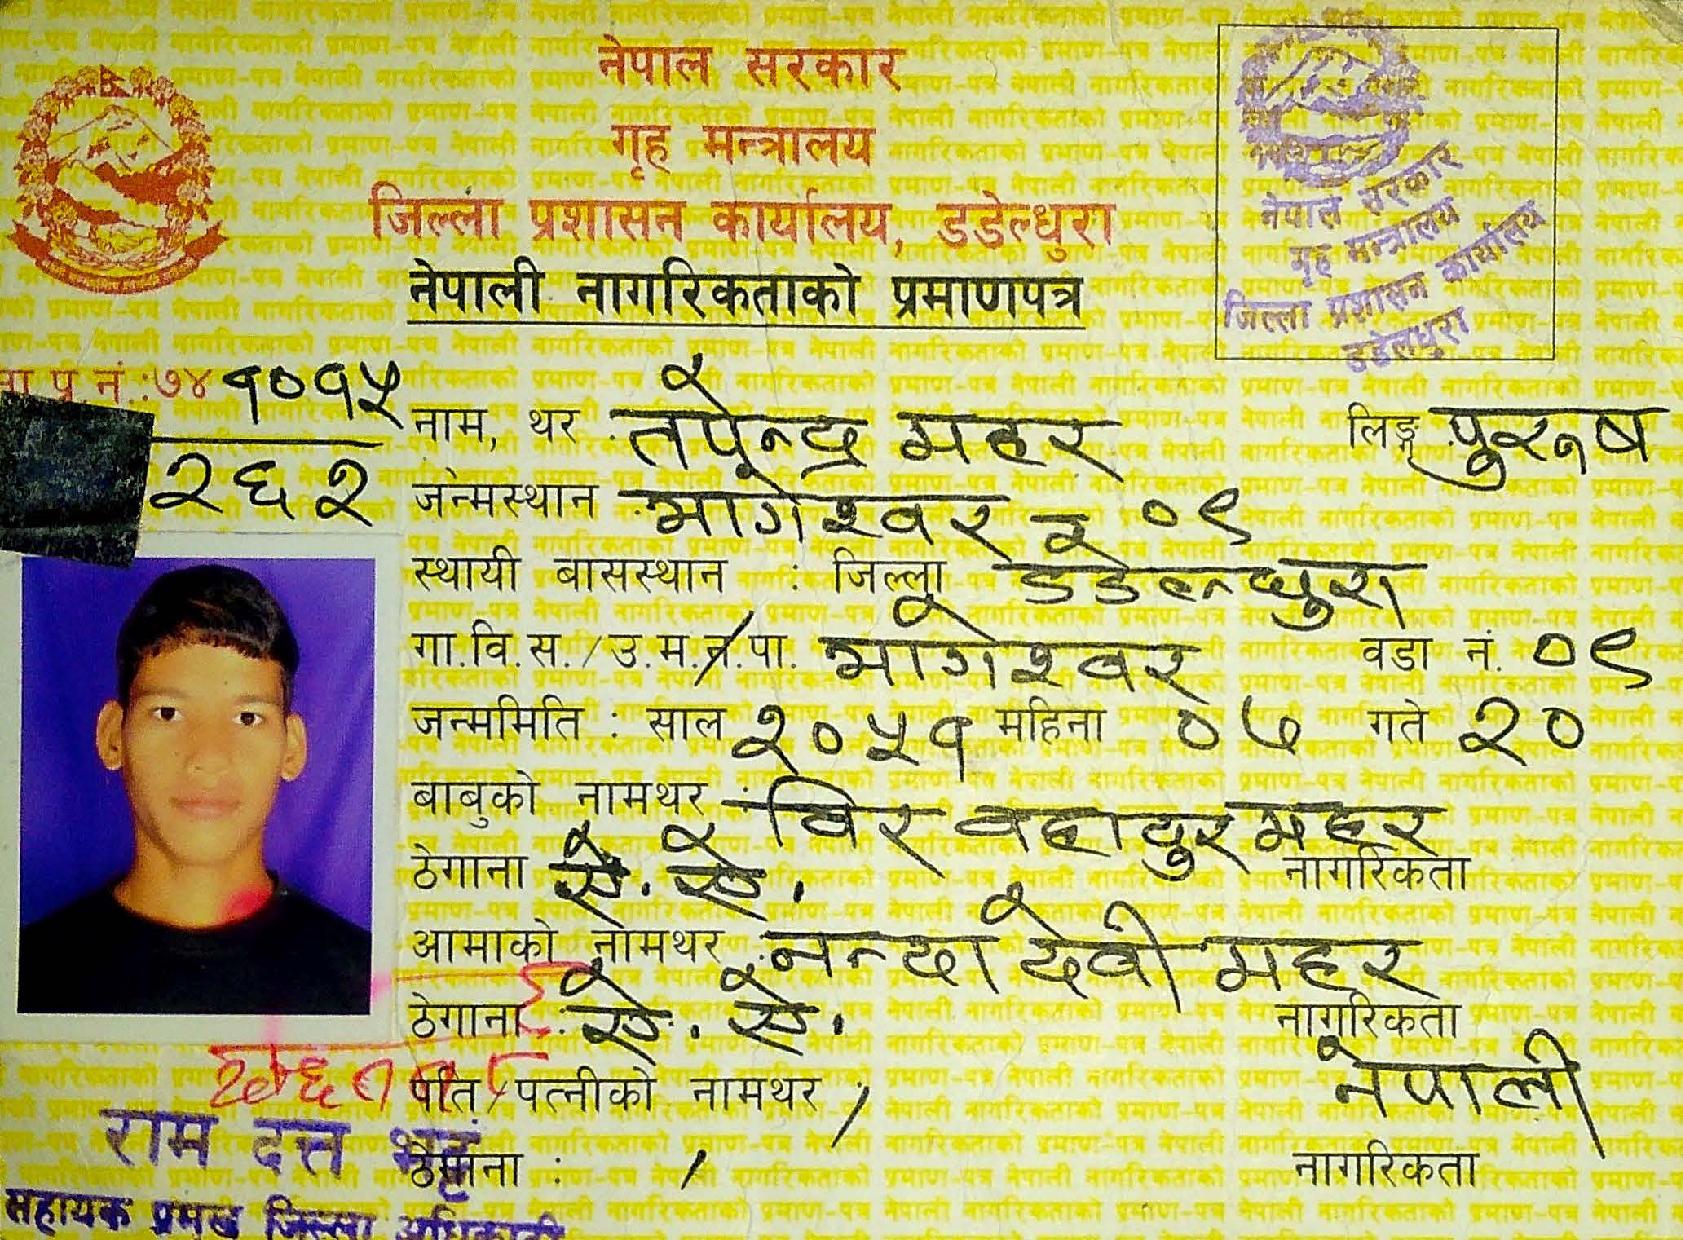 नेपाल सरकार
गृह मन्त्रालय
जिल्ला प्रशासन कार्यालय, डडेल्धुरा
नेपाली नागरिकताको प्रमाणपत्र
नेपाल सरकार
गृह मन्त्रालय
जिल्ला प्रशासन कार्यालय
डडेलधुरा
ना.प्र.नं.:७४ १०१५
२६२
नाम, थर : तपेन्द्र महर लिङ्ग पुरूष
जन्मस्थान : भागेश्वर ०९
स्थायी बासस्थान : जिल्ला डडेल्धुरा
गा.वि.स./उ.म.न.पा. भागेश्वर वडा नं. ०९
जन्ममिति : साल २०५१ महिना ०७ गते २०
बाबुको नामथर : विर वहादुर महर
ठेगाना ऐ. ऐ. नागरिकता
आमाको नामथर : नन्दा देवी महर
ठेगाना : ऐ. ऐ. नागरिकता
नेपाली
पति/पत्नीको नामथर :
ठेगाना : नागरिकता
राम दत्त भट्ट
सहायक प्रमुख जिल्ला अधिकारी